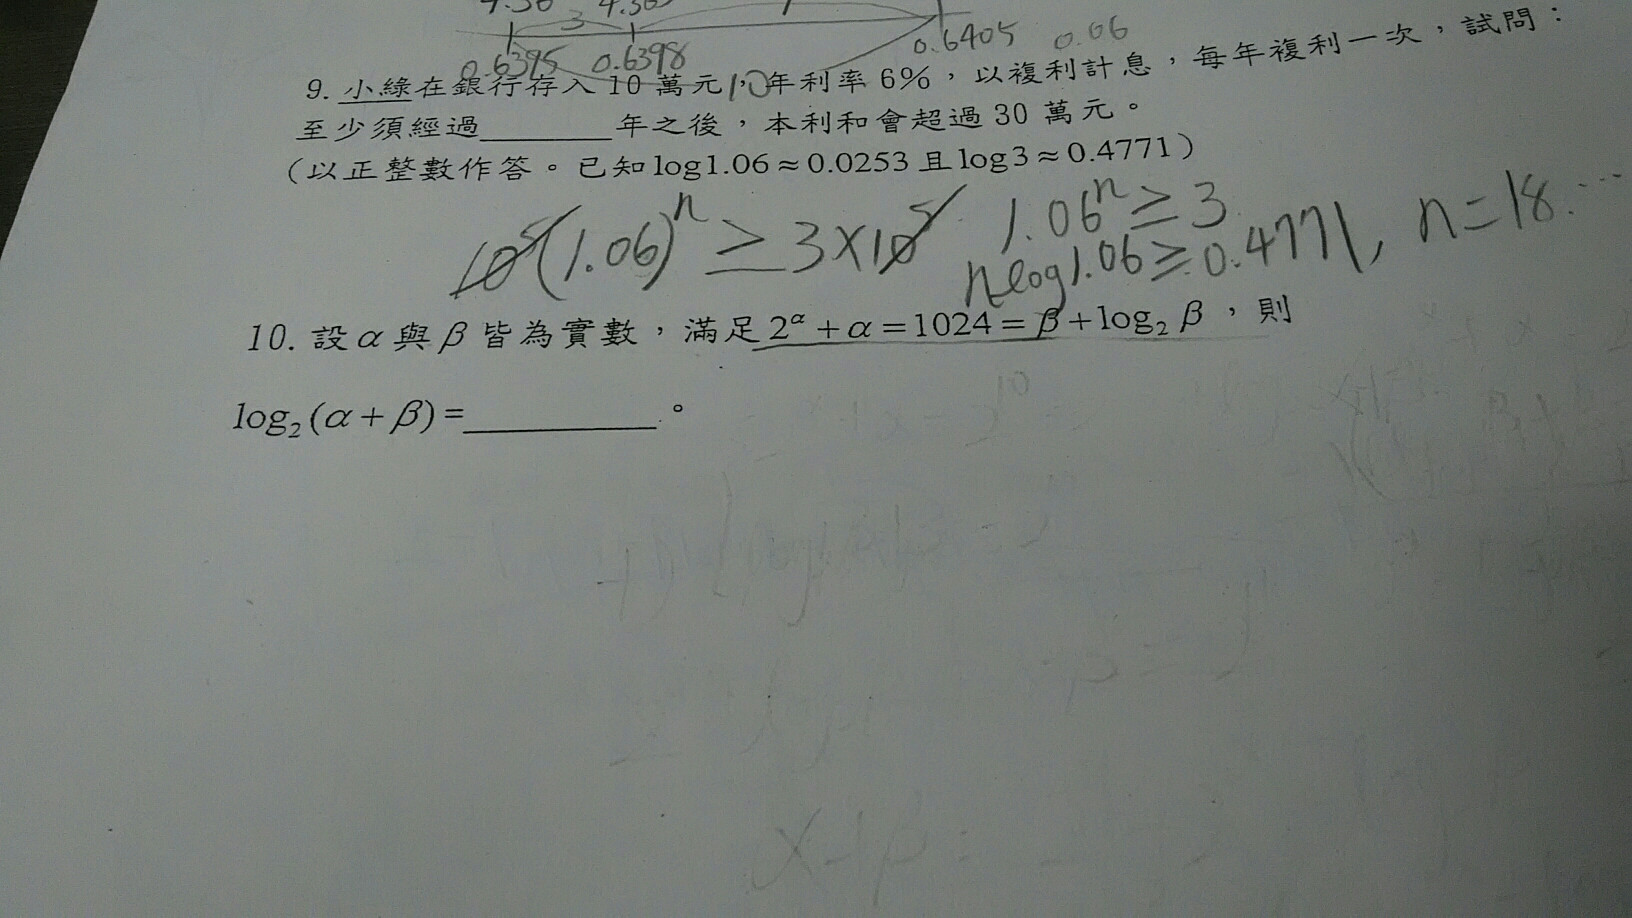 4.36 3 4.365
0.6395 0.6398 0.6405 0.06
9. 小綠在銀行存入 10 萬元，年利率 6%，以複利計息，每年複利一次，試問：
至少須經過________年之後，本利和會超過 30 萬元。
（以正整數作答。已知 log1.06 ≈ 0.0253 且 log3 ≈ 0.4771）
10⁵(1.06)ⁿ ≥ 3×10⁵ 1.06ⁿ ≥ 3
nlog1.06 ≥ 0.4771, n=18.…
10. 設 α 與 β 皆為實數，滿足 2^α + α = 1024 = β + log₂ β，則
log₂(α + β) = __________。